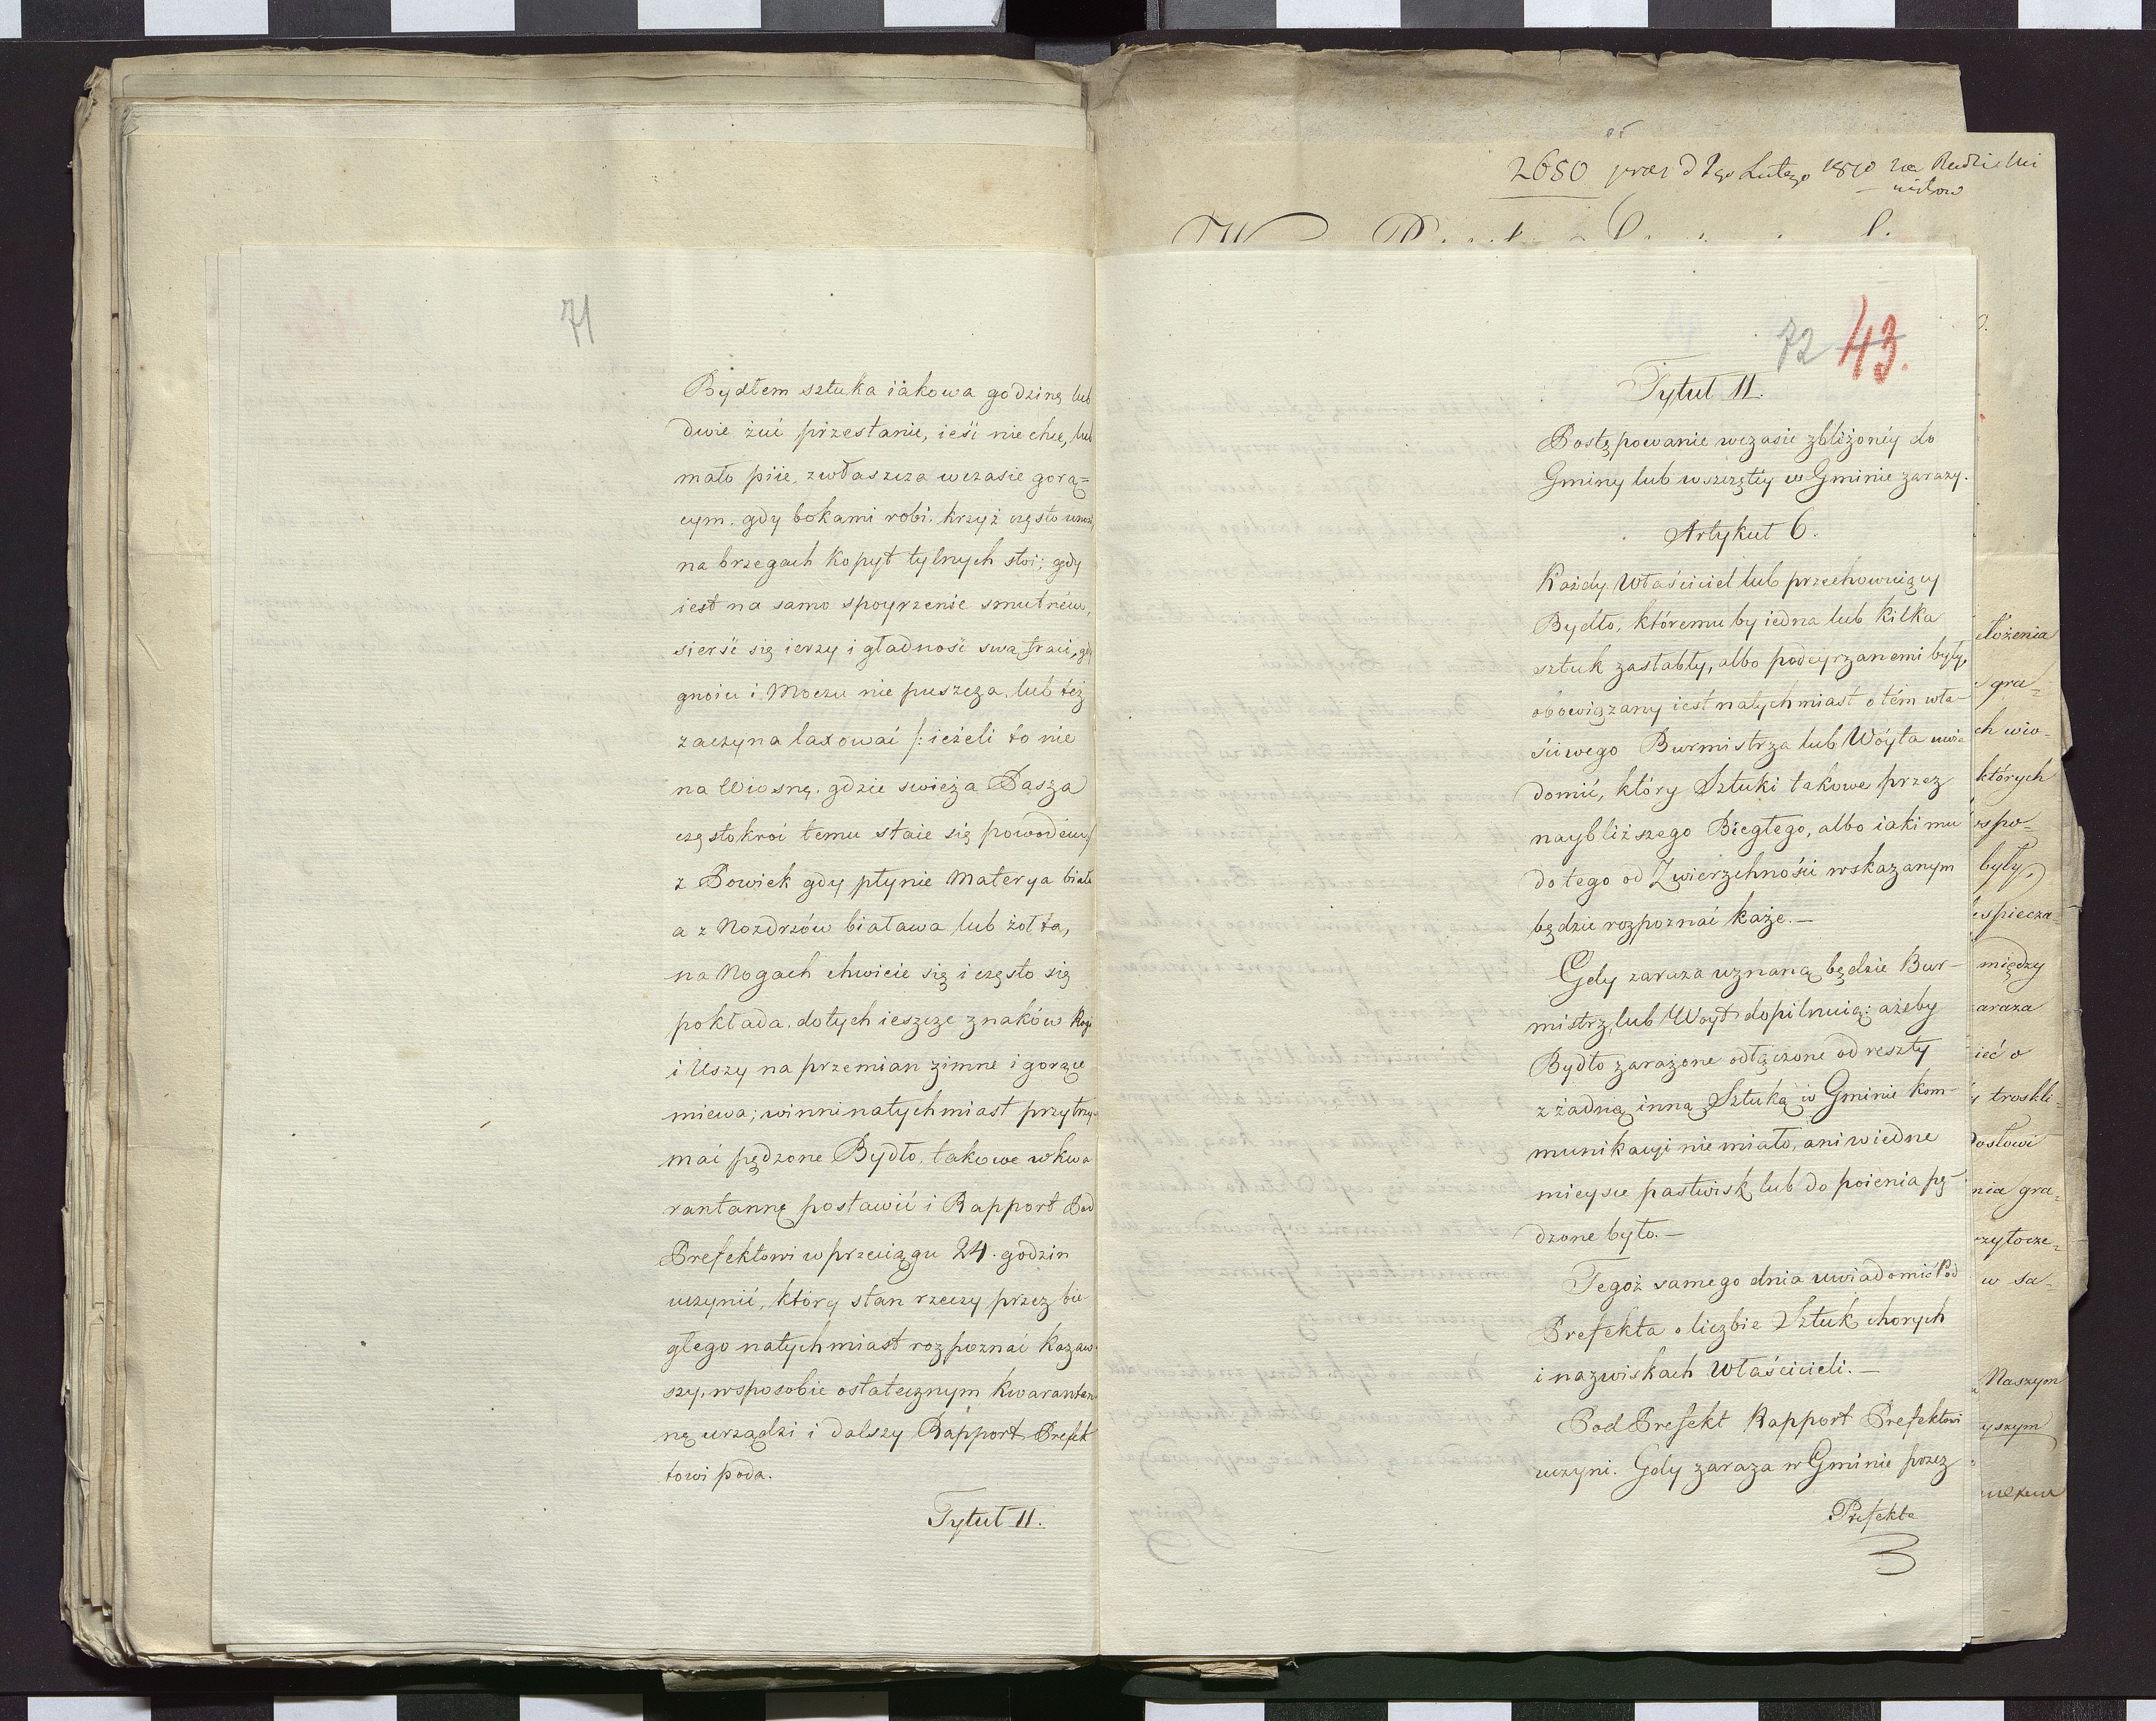 71
Bydłem sztuka iakowa godzinę lub
dwie żuć przestanie, ieść nie chce, lub
mało piie, zwłaszcza wczasie gorą=
cym. gdy bokami robi. krzyż często
na brzegach kopyt tylnych stoi; gdy
iest na samo spoyrzenie smutném,
sierść się ierzy i gładność swą traci, gdy
gnoiu i Moczu nie puszcza, lub też
zaczyna laxować /: ieżeli to nie
na Wiosnę. gdzie swieża Pasza
częstokroć temu staie się powodem/
z Powiek gdy płynie Materya biała
a z Nozdrzów biaława lub żołta,
na Nogach chwieie się i często się
pokłada. do tych ieszcze znaków Rogi
i Uszy na przemian zimne i gorące
miewa; winni natychmiast przytrzy-
mać pędzone Bydło, takowe w kwa
rantannę postawić i Rapport Pod
Prefektowi w przeciągu 24. godzin
uczynić, który stan rzeczy przez bie
głego natychmiast rozpoznać kazaw-
szy, w sposobie ostatecznym kwarantan
nę urządzi i dalszy Rapport Prefek
towi poda.
Tytuł II.
2680 praes d 7go Lutego 1810
72 43.
Tytuł II.
Postępowanie wczasie zbliżonéy do
Gminy lub wszczętéy w Gminie zarazy.
Artykuł 6.
Każdy Właściciel lub przechowuiący
Bydło, któremu by iedna lub kilka
sztuk zasłabły, albo podeyrzanemi były,
obowiązany iest natychmiast o tém wła-
ściwego Burmistrza lub Wóyta uwia
domić, który Sztuki takowe przez
naybliższego Biegłego, albo iaki mu
do tego od Zwierzchności wskazanym
będzie rozpoznać każe.—
Gdy zaraza uznaną będzie Bur-
mistrz, lub Woyt dopilnuią: ażeby
Bydło zarażone odłączone od reszty
z żadną inną Sztuką w Gminie kom-
munikacyi nie miało, ani w iedne
mieysce pastwisk lub do poienia pę-
dzone było.—
Tegoż samego dnia uwiadomić Pod
Prefekta o liczbie Sztuk chorych
i nazwiskach Właścicieli.—
Pod Prefekt Rapport Prefektowi
uczyni. Gdy zaraza w Gminie przez
Prefekta
łożenia
gra=
ch wio-
których
spo=
były,
spiecza=
między
zaraza
ieć o
troskli=
osłowi
nia gra=
zytocze=
w sa-
Naszym
yszym